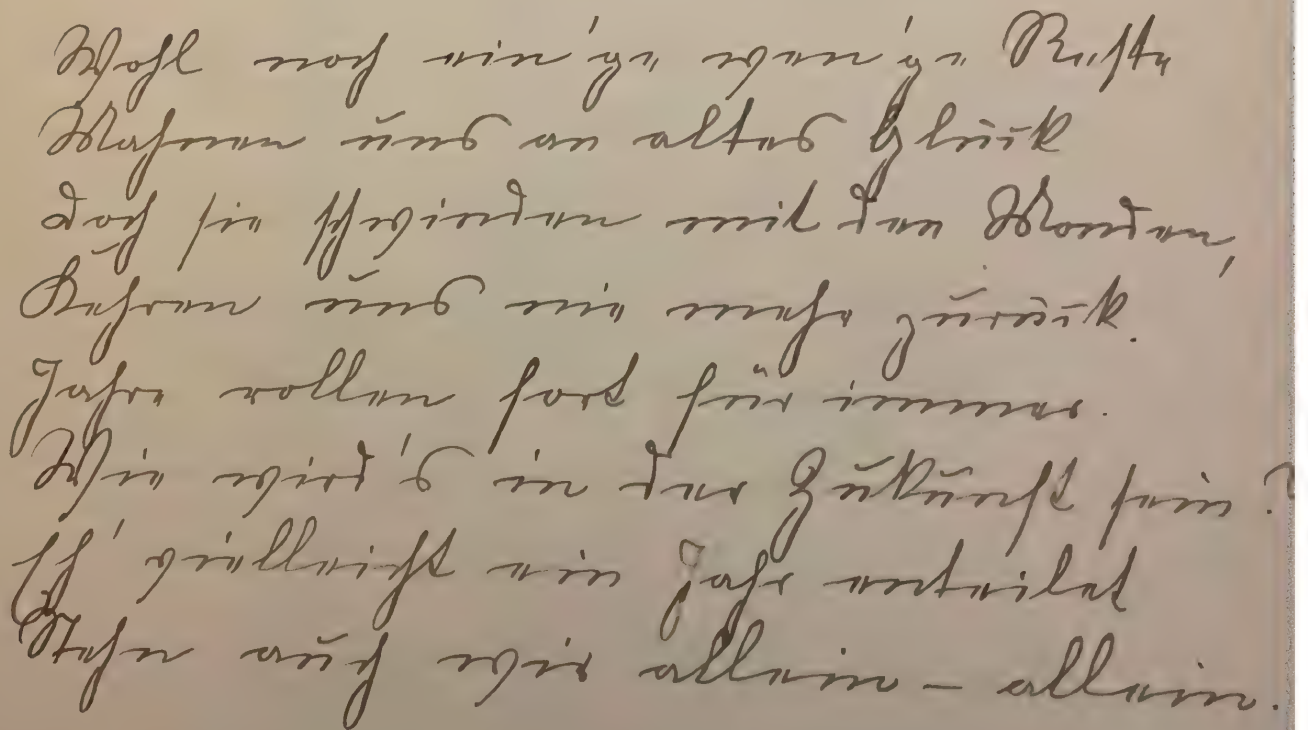 Wohl noch ein'ge wen'ge Reste
Mahnen uns an altes Glück
Doch sie schwinden mit den Monden,
Kehren uns nie mehr zurück.
Jahre rollen fort für immer.
Wie wird's in der Zukunft sein?
Eh' vielleicht ein Jahr enteilet
Stehn auch wir allein – allein.